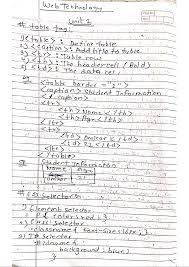 Web Technology
Unit 2
# Table Tag:
1) <table> : Define table
2) <caption> : Add title to table
3) <tr> : Table row
4) <th> : The header cell (Bold)
5) <td> : The data cell
<table border = "2">
<caption> Student Information
</caption>
<tr>
<th> Name </th>
<th> Age </th>
</tr>
<tr>
</td>
<td> 22 </td>
</tr>
</table>
Student Information
Name
22
# CSS Selectors
1) Element Selector
P { color: red; }
2) Class Selector
.classname { font-size: 18px; }
3) ID Selector
#idname {
background: blue; }